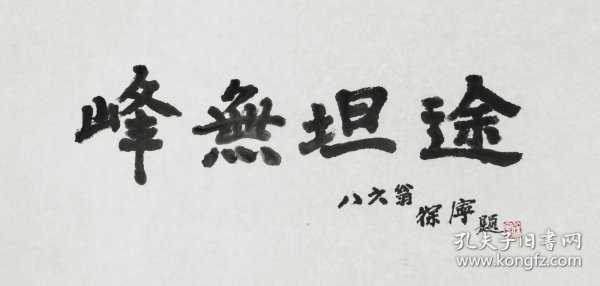 峰無坦途
八六翁
徐寧題
孔夫子旧书网
www.kongfz.com